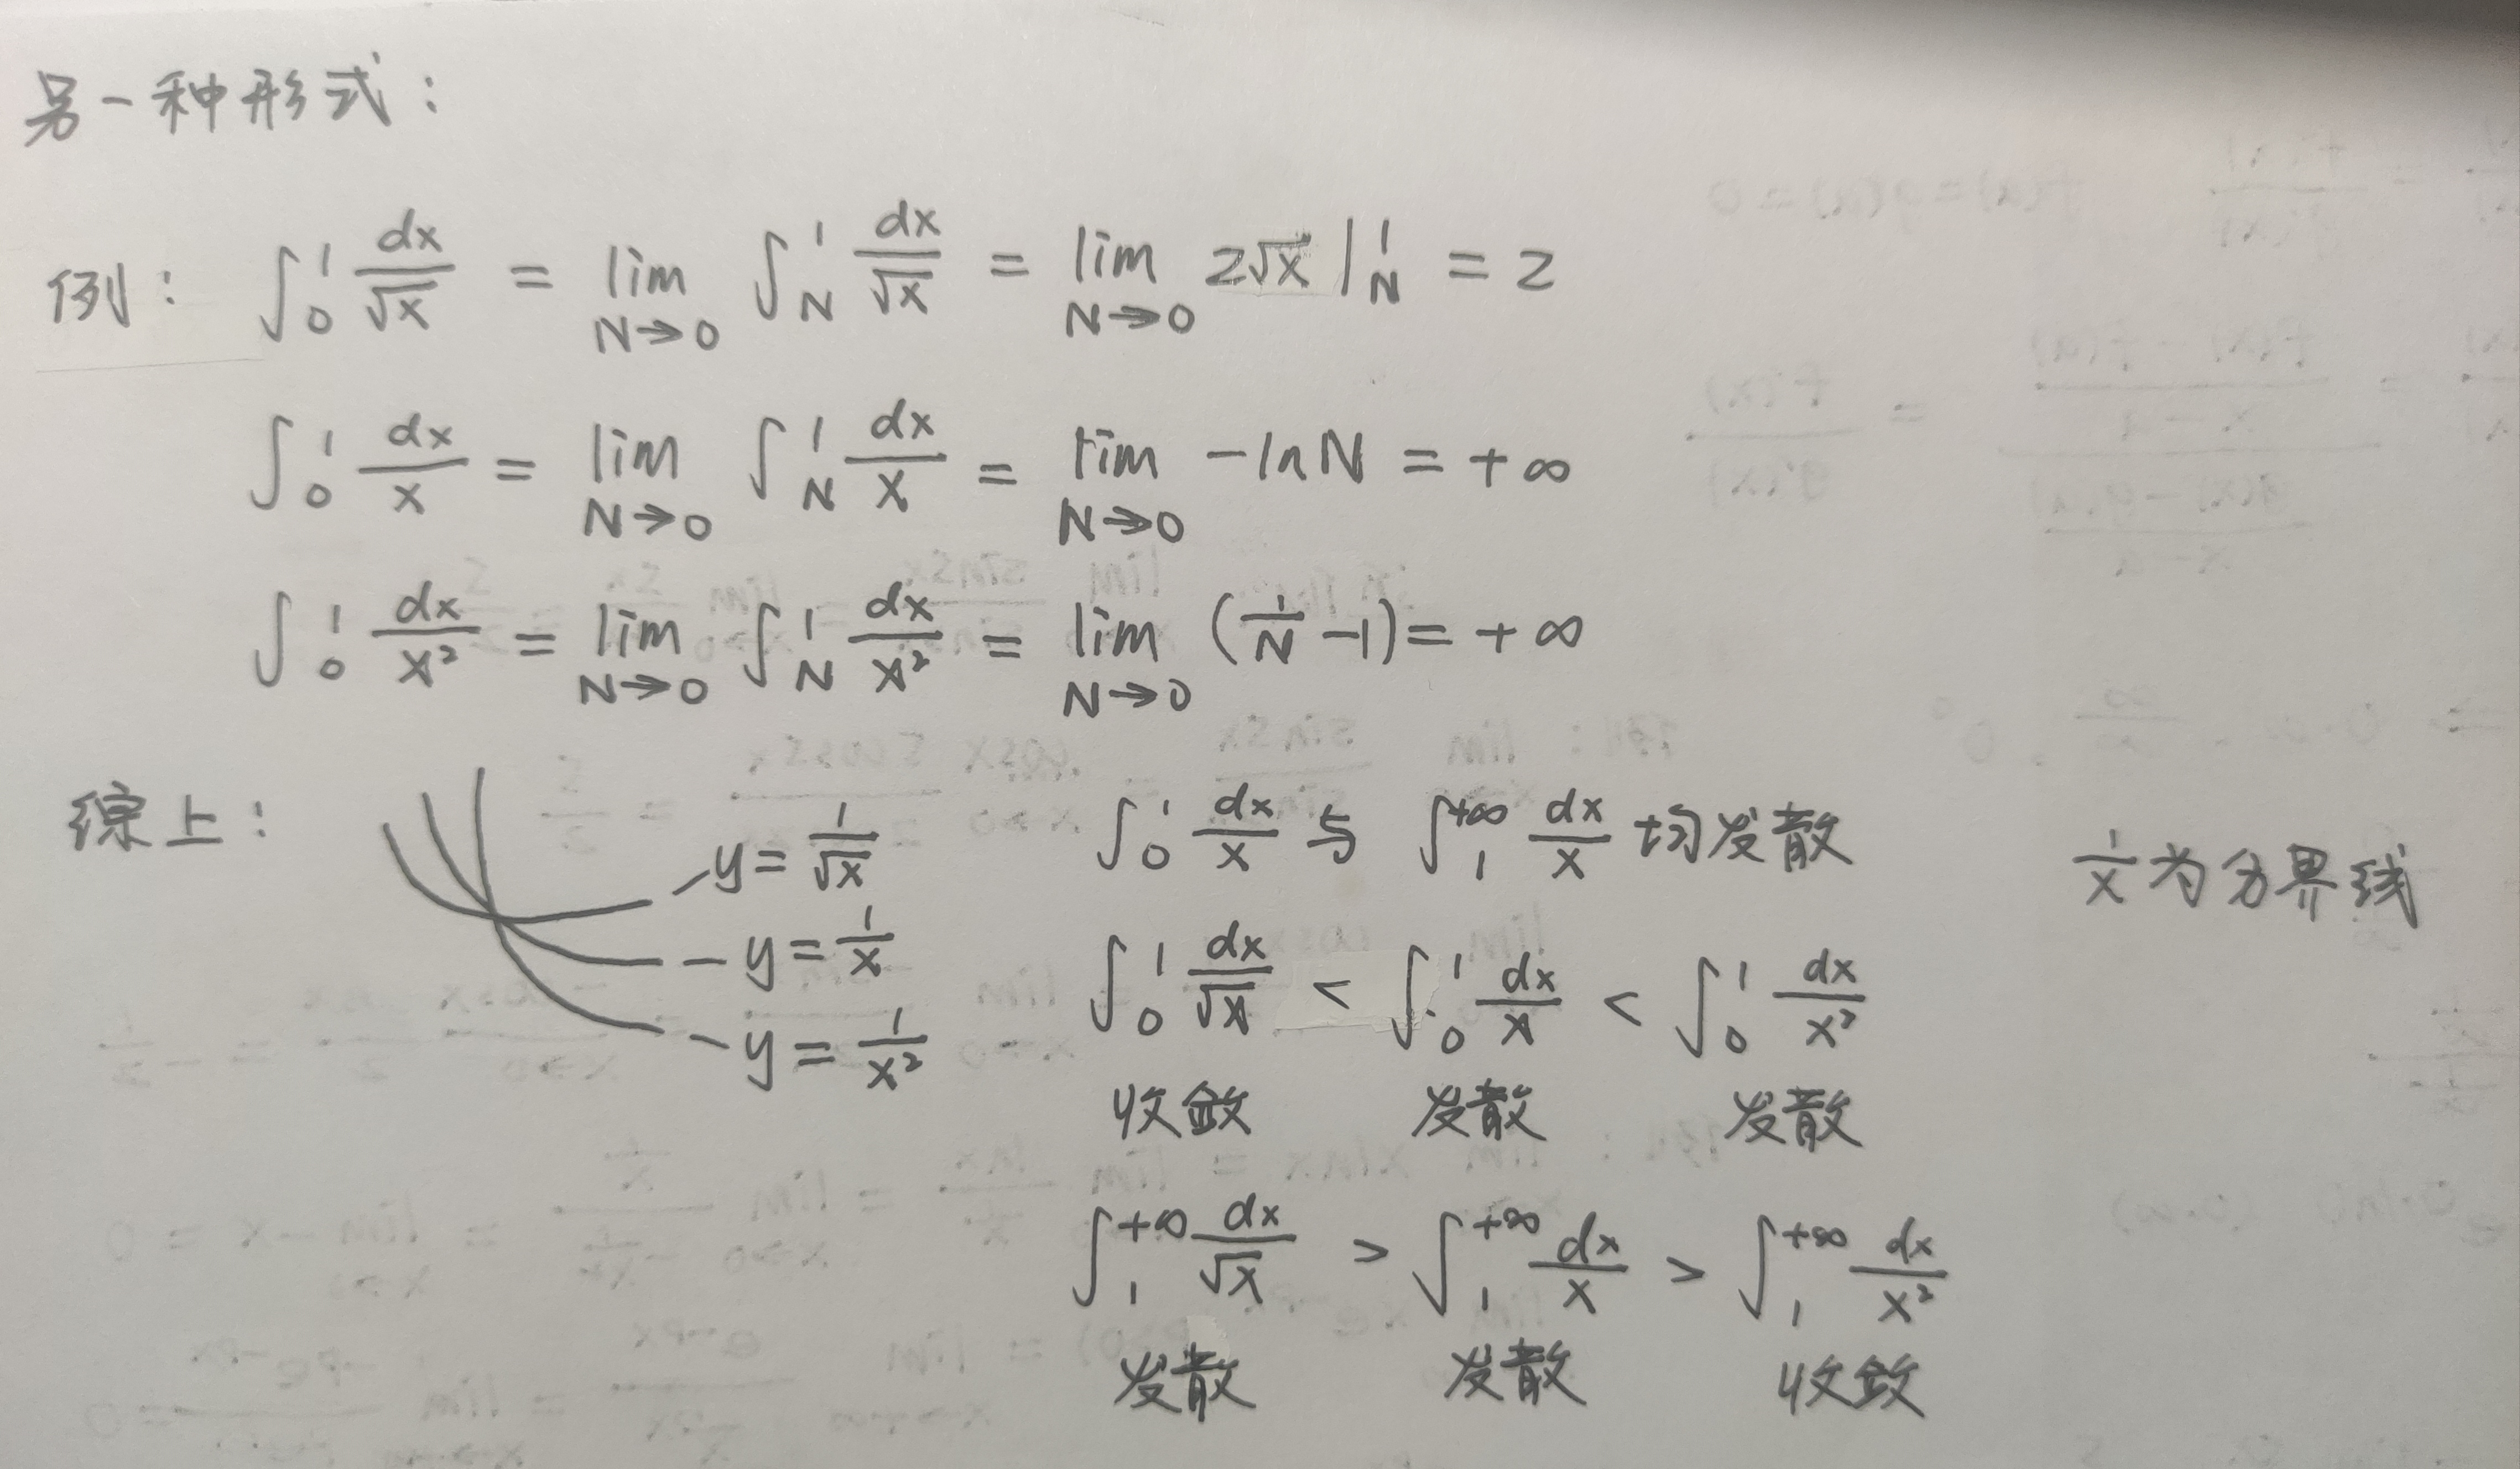 另一种形式：
例： ∫₀¹ dx/√x = lim_{N→0} ∫_N¹ dx/√x = lim_{N→0} 2√x |_N¹ = 2
∫₀¹ dx/x = lim_{N→0} ∫_N¹ dx/x = lim_{N→0} -lnN = +∞
∫₀¹ dx/x² = lim_{N→0} ∫_N¹ dx/x² = lim_{N→0} (1/N -1) = +∞
综上：
y = 1/√x
y = 1/x
y = 1/x²
∫₀¹ dx/x 与 ∫₁^{+∞} dx/x 均发散
1/x 为分界线
∫₀¹ dx/√x < ∫₀¹ dx/x < ∫₀¹ dx/x²
收敛 发散 发散
∫₁^{+∞} dx/√x > ∫₁^{+∞} dx/x > ∫₁^{+∞} dx/x²
发散 发散 收敛